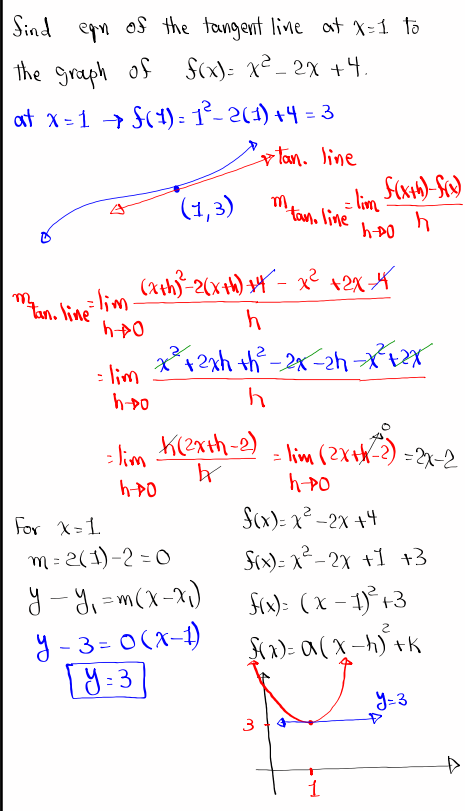 find eqn of the tangent line at x=1 to
the graph of f(x)= x² - 2x + 4.
at x=1 → f(1)= 1² - 2(1) + 4 = 3
tan. line
(1,3)
m tan. line = lim h→0 (f(x+h) - f(x)) / h
m tan. line = lim h→0 ((x+h)² - 2(x+h) + 4 - x² + 2x - 4) / h
= lim h→0 (x² + 2xh + h² - 2x - 2h - x² + 2x) / h
= lim h→0 h(2x+h-2) / h = lim h→0 (2x+h-2) = 2x-2
0
For x=1
m = 2(1) - 2 = 0
y - y₁ = m(x - x₁)
y - 3 = 0(x-1)
y = 3
f(x)= x² - 2x + 4
f(x)= x² - 2x + 1 + 3
f(x)= (x-1)² + 3
f(x)= a(x-h)² + k
y=3
3
1